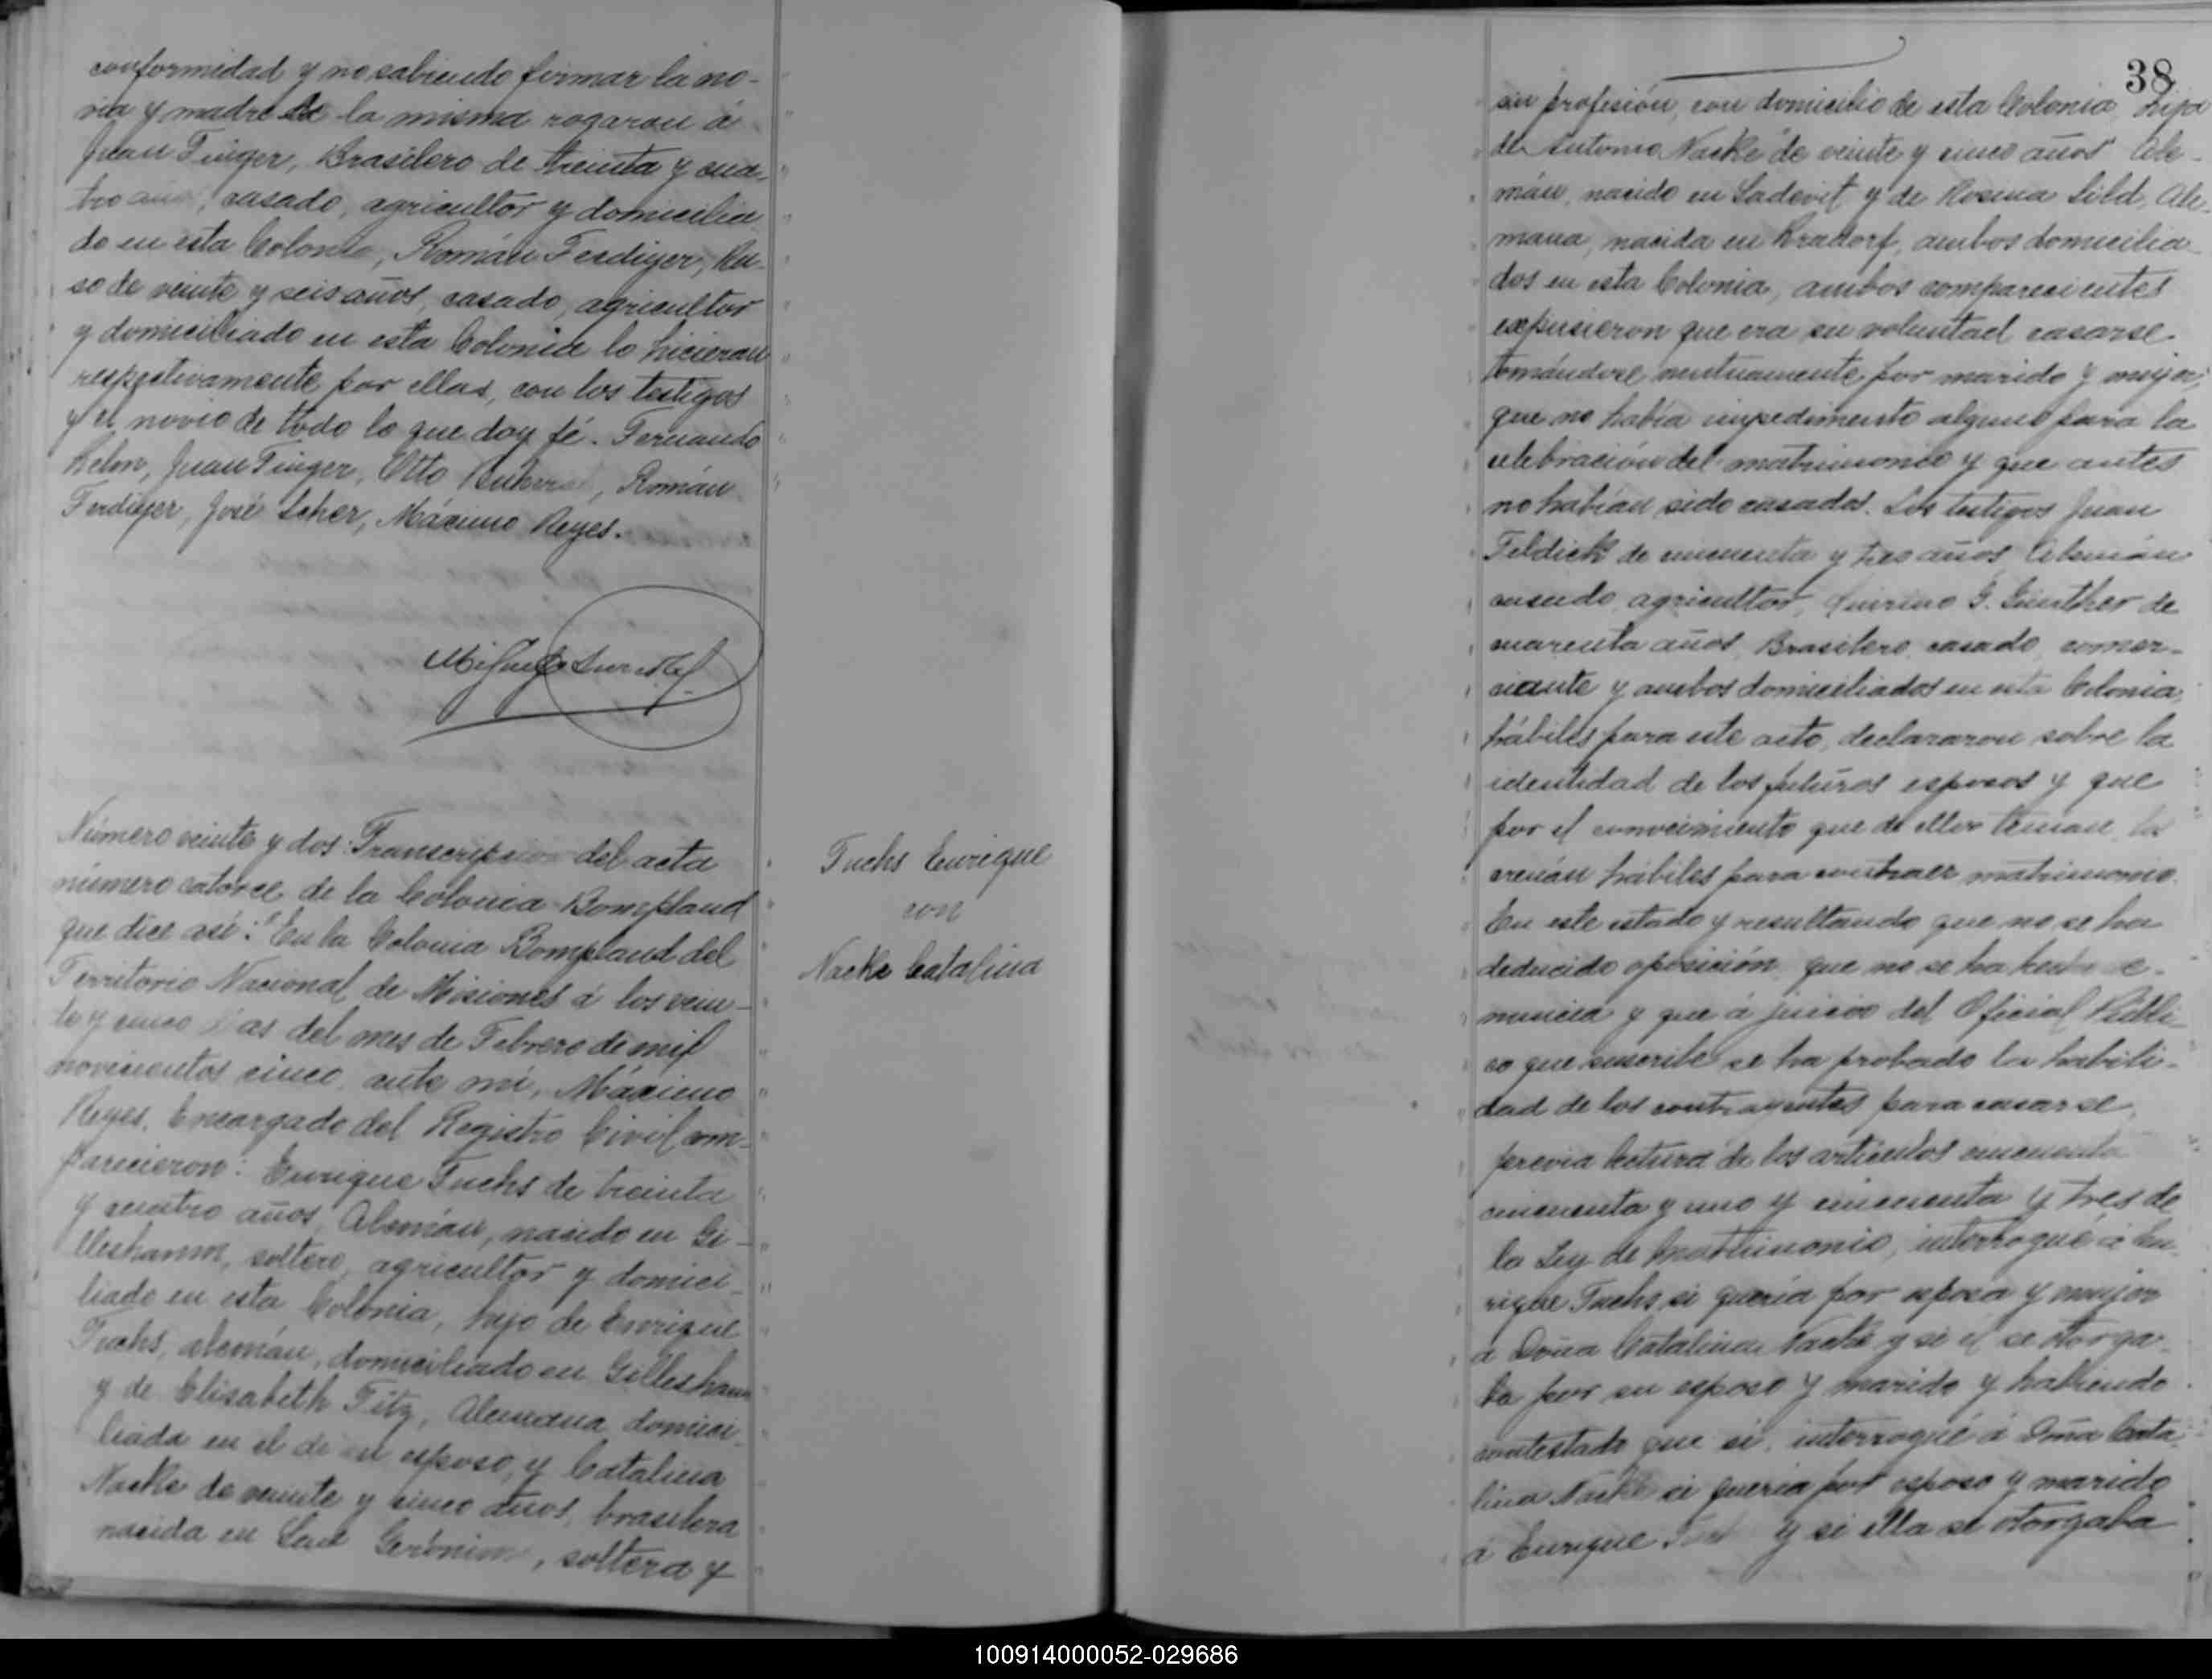 conformidad y no sabiendo firmar la no-
via y madre de la misma rogaron á
Juan Finger, Brasilero de treinta y cua-
tro años, casado, agricultor y domicilia
do en esta Colonia, Román Ferdiger, Ru-
so de veinte y seis años, casado, agricultor
y domiciliado en esta Colonia lo hicieran
respectivamente por ellas, con los testigos
y el novio de todo lo que doy fé. Fernando
Helm, Juan Finger, Otto, Román
Ferdiger, José Scher, Máximo Reyes.
Número veinte y dos: Transcripcion del acta
número catorce de la Colonia Bompland
que dice así: "En la Colonia Bompland del
Territorio Nacional de Misiones á los vein-
te y cinco dias del mes de Febrero de mil
novecientos cinco, ante mí, Máximo
Reyes, Encargado del Registro Civil com-
parecieron: Enrique Fuchs de treinta
y cuatro años, Alemán, nacido en Gi-
lleshamm, soltero, agricultor y domici-
liado en esta Colonia, hijo de Enrique
Fuchs, alemán, domiciliado en Gilleshamm
y de Elisabeth Titz, Alemana, domici-
liada en el de su esposo, y Catalina
Nacke de veinte y cinco años, brasilera
nacida en Gerónimo, soltera y
Fuchs Enrique
con
Nacke Catalina
38
sin profesión, con domicilio de esta Colonia, hija
de Antonio Nacke de veinte y cinco años, Ale-
mán, nacido en Sadevit y de Rosina Sild, Ale-
mana, nacida en Kradorf, ambos domicilia-
dos en esta Colonia, ambos comparecientes
expusieron que era su voluntad casarse
tomándose mutuamente por marido y mujer,
que no había impedimento alguno para la
celebración del matrimonio y que antes
no habían sido casados. Los testigos Juan
Feldick de cincuenta y tres años, Alemán
casado, agricultor, Quirino G. Günther de
cuarenta años, Brasilero, casado, comer-
ciante y ambos domiciliados en esta Colonia,
hábiles para este acto, declararon sobre la
identidad de los futuros esposos y que
por el conocimiento que de ellos tenian, los
creían hábiles para contraer matrimonio.
En este estado y resultando que no se ha
deducido oposición, que no se ha hecho de-
nuncia y que á juicio del Oficial Públi-
co que suscribe se ha probado la habili-
dad de los contrayentes para casarse,
previa lectura de los artículos cincuenta
cincuenta y uno y cincuenta y tres de
la Ley de Matrimonio, interrogué á En-
rique Fuchs si quería por esposa y mujer
á Doña Catalina Nacke y si él se otorga-
ba por su esposo y marido y habiendo
contestado que si, interrogué á Doña Cata-
lina Nacke si quería por esposo y marido
á Enrique y si ella se otorgaba
100914000052-029686